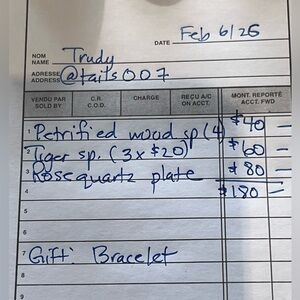 DATE Feb 6/26
NOM
NAME Trudy
ADRESSE
ADDRESS @tails007
VENDU PAR
SOLD BY
C.R.
C.O.D.
CHARGE
REÇU A/C
ON ACCT.
MONT. REPORTÉ
ACCT. FWD
1 Petrified wood sp (4) $40 –
2 Tiger sp. (3 x $20) $60 –
3 Rose quartz plate $80 –
4 $180 –
5
6
7 Gift: Bracelet
8
9